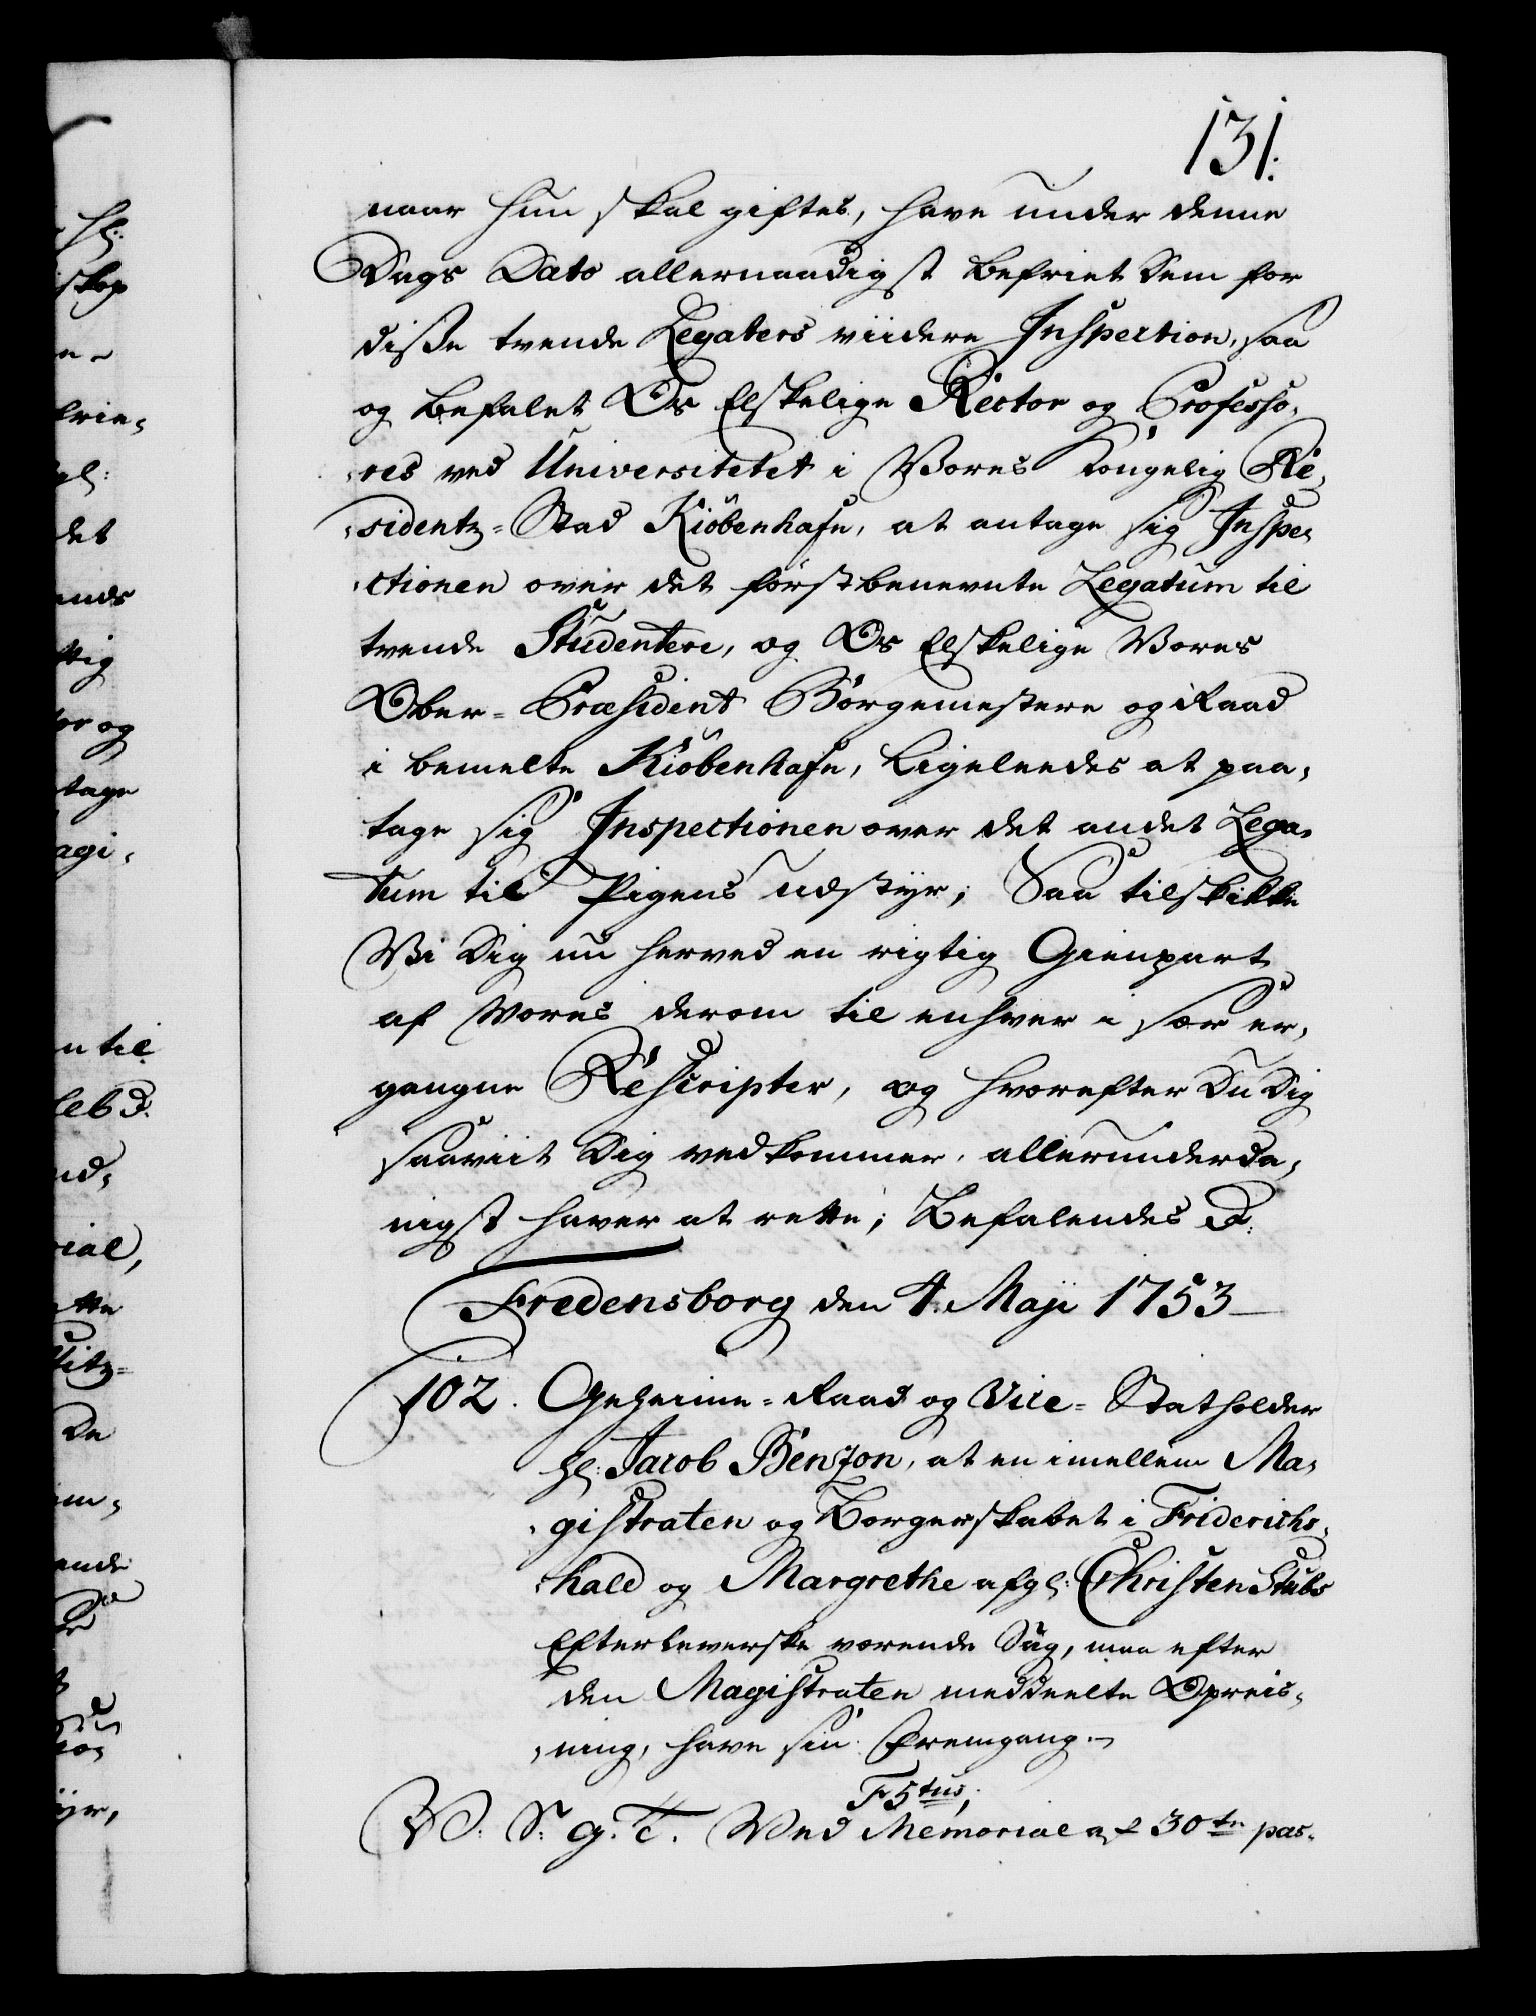 131.
naar hun skal giftes, have under denne
Dags Dato allernaadigst befriet dem for
disse tvende Legaters viidere Inspection, saa
og befalet Os Elskelige Rector og Professo-
res ved Universitetet i Vores Kongelig Re-
sidentz-Stad Kiöbenhafn, at antage sig Inspe-
ctionen over det förstbenevnte Legatum til
tvende Studentere, og Os Elskelige Vores
Ober-Præsident Börgemestere og Raad
i bemelte Kiöbenhafn, Ligeleedes at paa-
tage sig Inspectionen over det andet Lega-
tum til Pigens Udstyr; Saa tilskikke
Vi Dig nu herved en rigtig Gienpart
af Vores derom til enhver i sær er-
gangne Rescripter, og hvorefter Du Dig
saaviit Dig vedkommer, allerunderda-
nigst haver at rette; Befalendes &.
Fredensborg den 4. Maji 1753
102. Geheime-Raad og Vice-Statholder
Hl: Jacob Benzon, at en imellem Ma-
gistraten og Borgerskabet i Friderichs-
hald og Margrethe afgl: Christen Stubs
Efterleverske værende Sag, maa efter
den Magistraten meddeelte Opreis-
ning, have sin Fremgang.
F 5tus;
V. S: g. T. Ved Memorial af 30te pas-